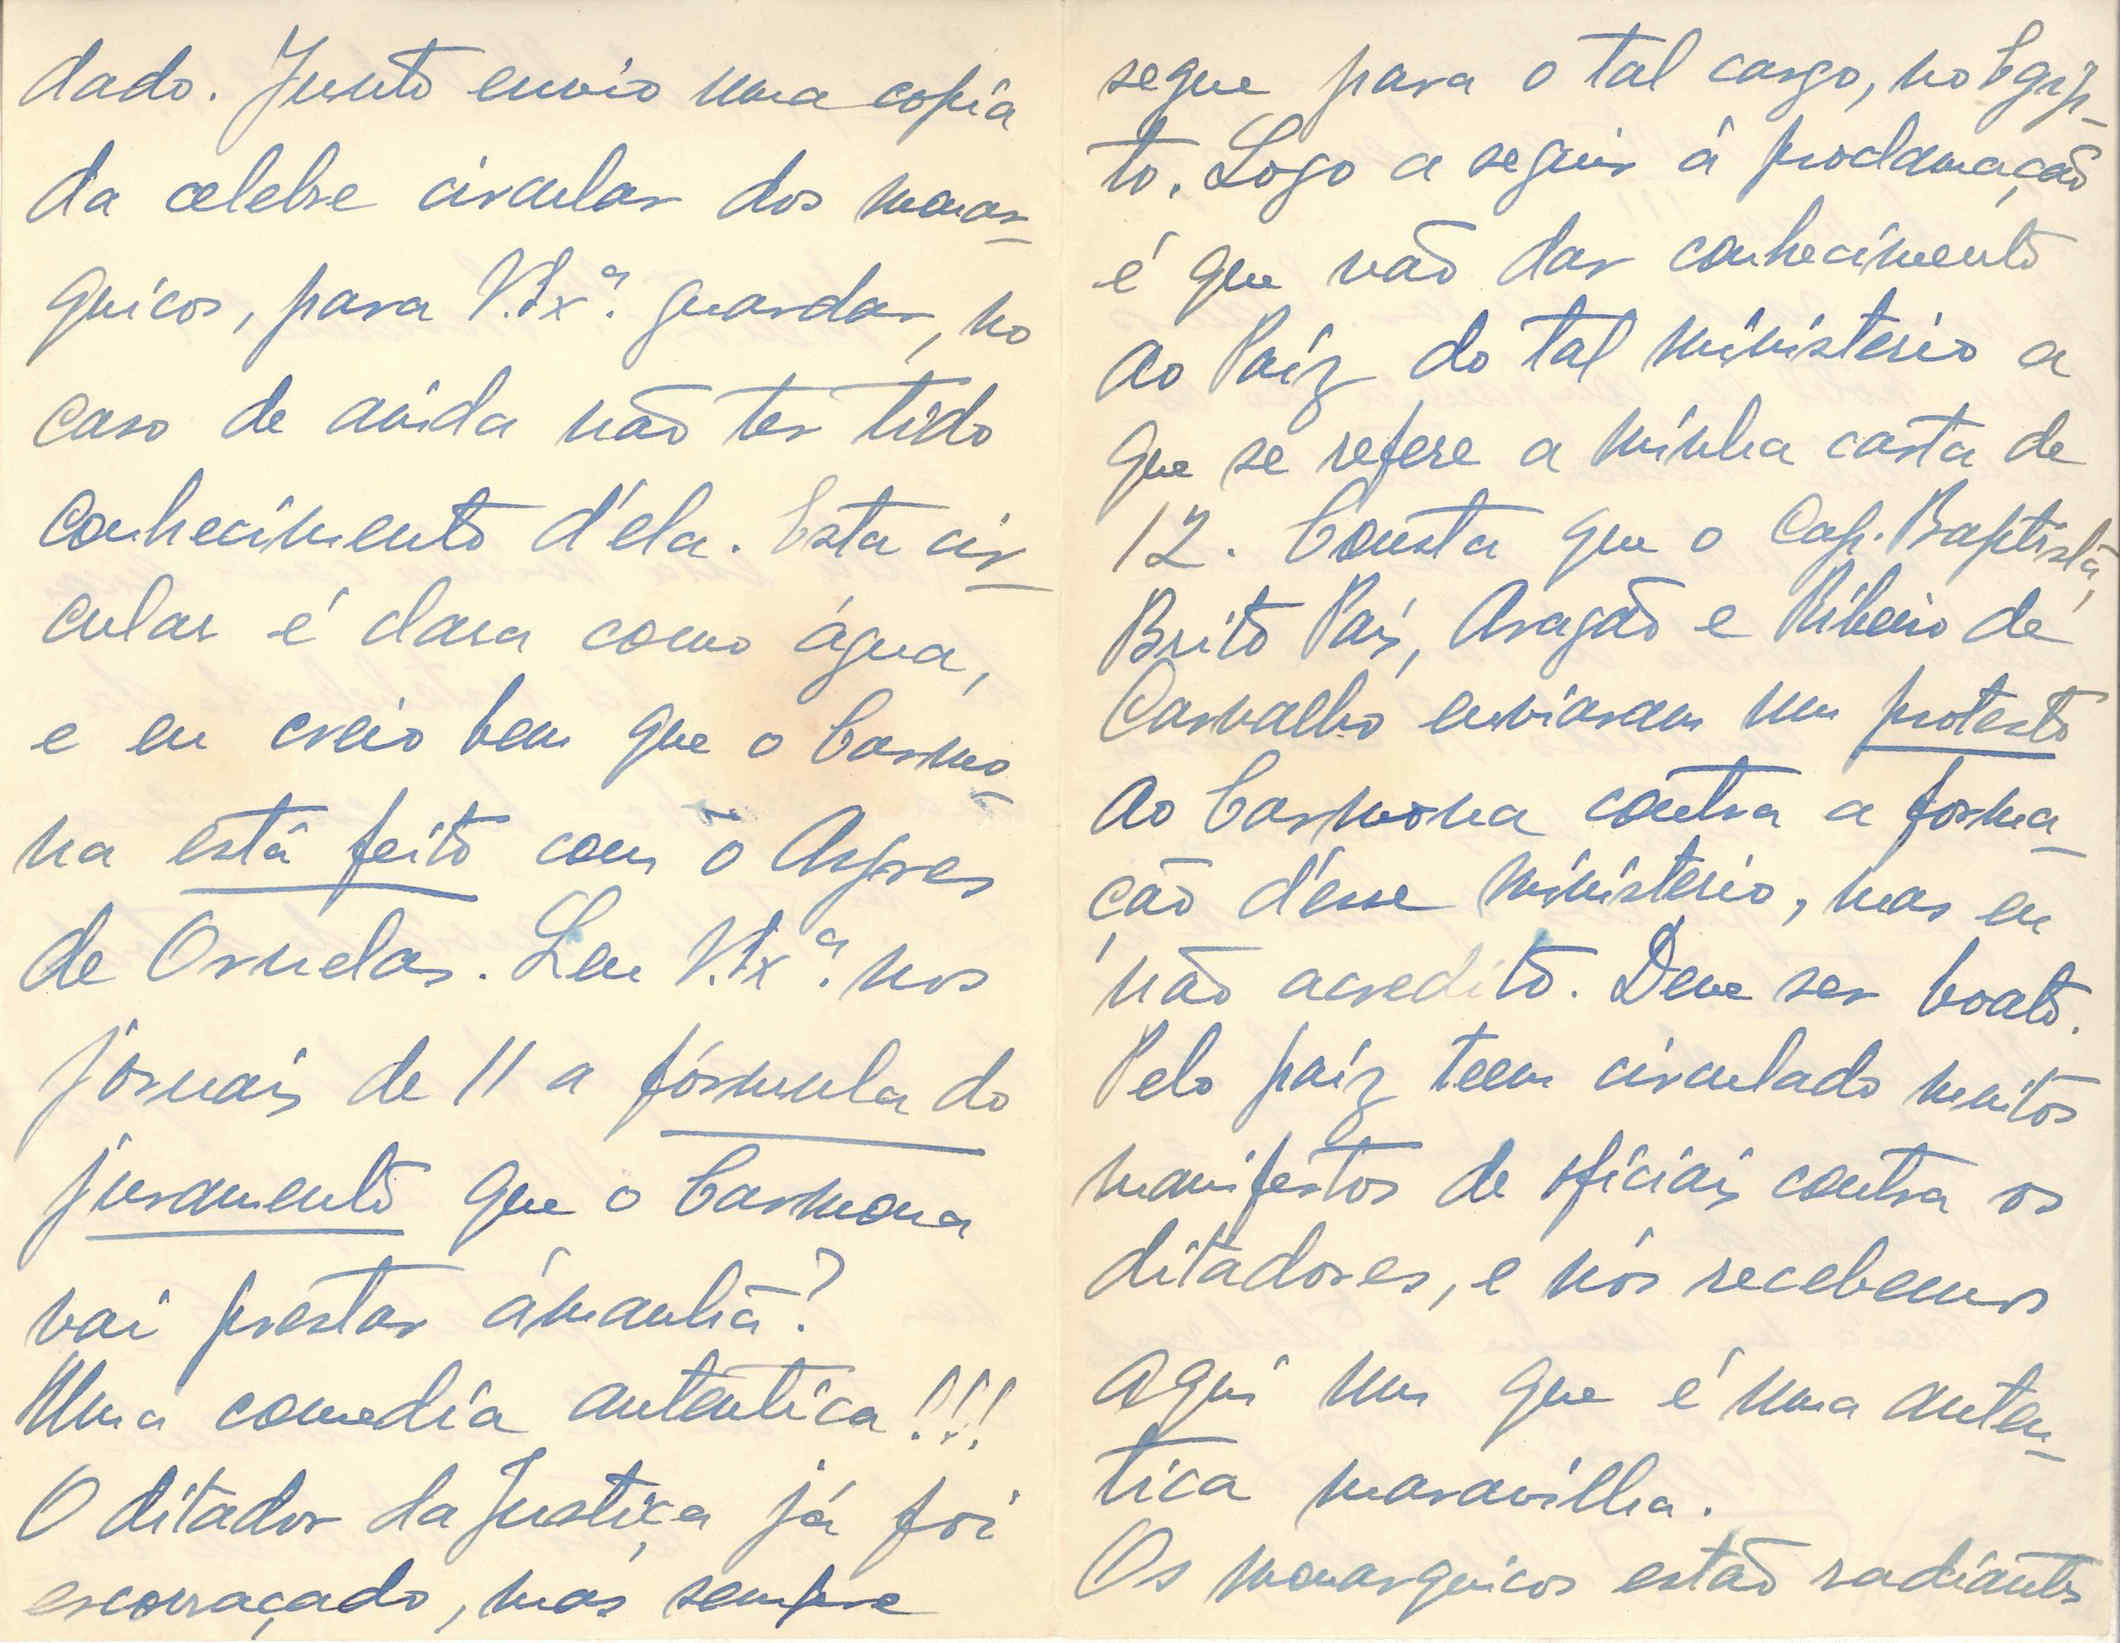 dado. Junto envio uma copia
da celebre circular dos monar-
quicos, para V. Exª. guardar, no
caso de ainda não ter tido
conhecimento d'ela. Esta cir-
cular é clara como água,
e eu creio bem que o Carmo-
na está feito com o Ayres
de Ornelas. Leu V. Exª. nos
jornais de 11 a fórmula do
juramento que o Carmona
vai prestar ámanhã?
Uma comedia autentica!!!
O ditador da Justiça já foi
escorraçado, mas sempre
segue para o tal cargo, no Egip-
to. Logo a seguir á proclamação
é que vão dar conhecimento
ao Paiz do tal ministerio a
que se refere a minha carta de
12. Consta que o Cap. Baptista,
Brito Pais, Aragão e Ribeiro de
Carvalho enviaram um protesto
ao Carmona contra a forma-
ção d'esse ministerio, mas eu
não acredito. Deve ser boato.
Pelo paiz teem circulado muitos
manifestos de oficiais contra os
ditadores, e nós recebemos
aqui um que é uma auten-
tica maravilha.
Os monarquicos estão radiantes